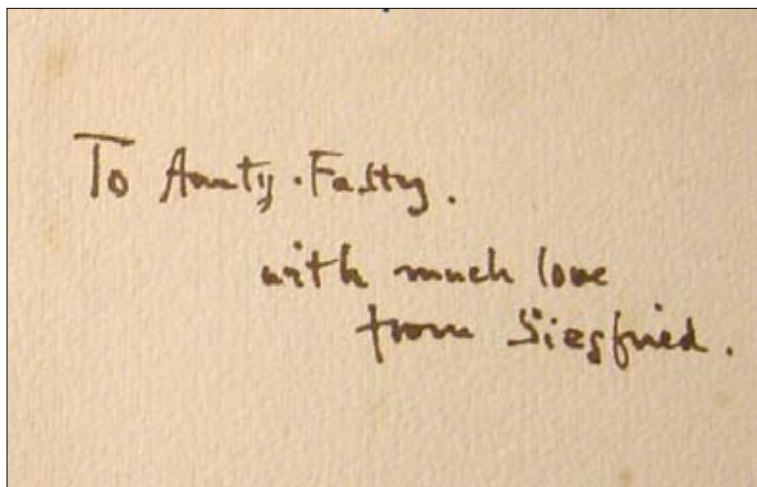 To Aunty·Fasty.
with much love
from Siegfried.